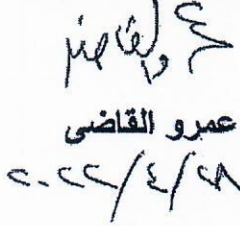 عمرو القاضى
٢٠٢٢/٤/٢٨